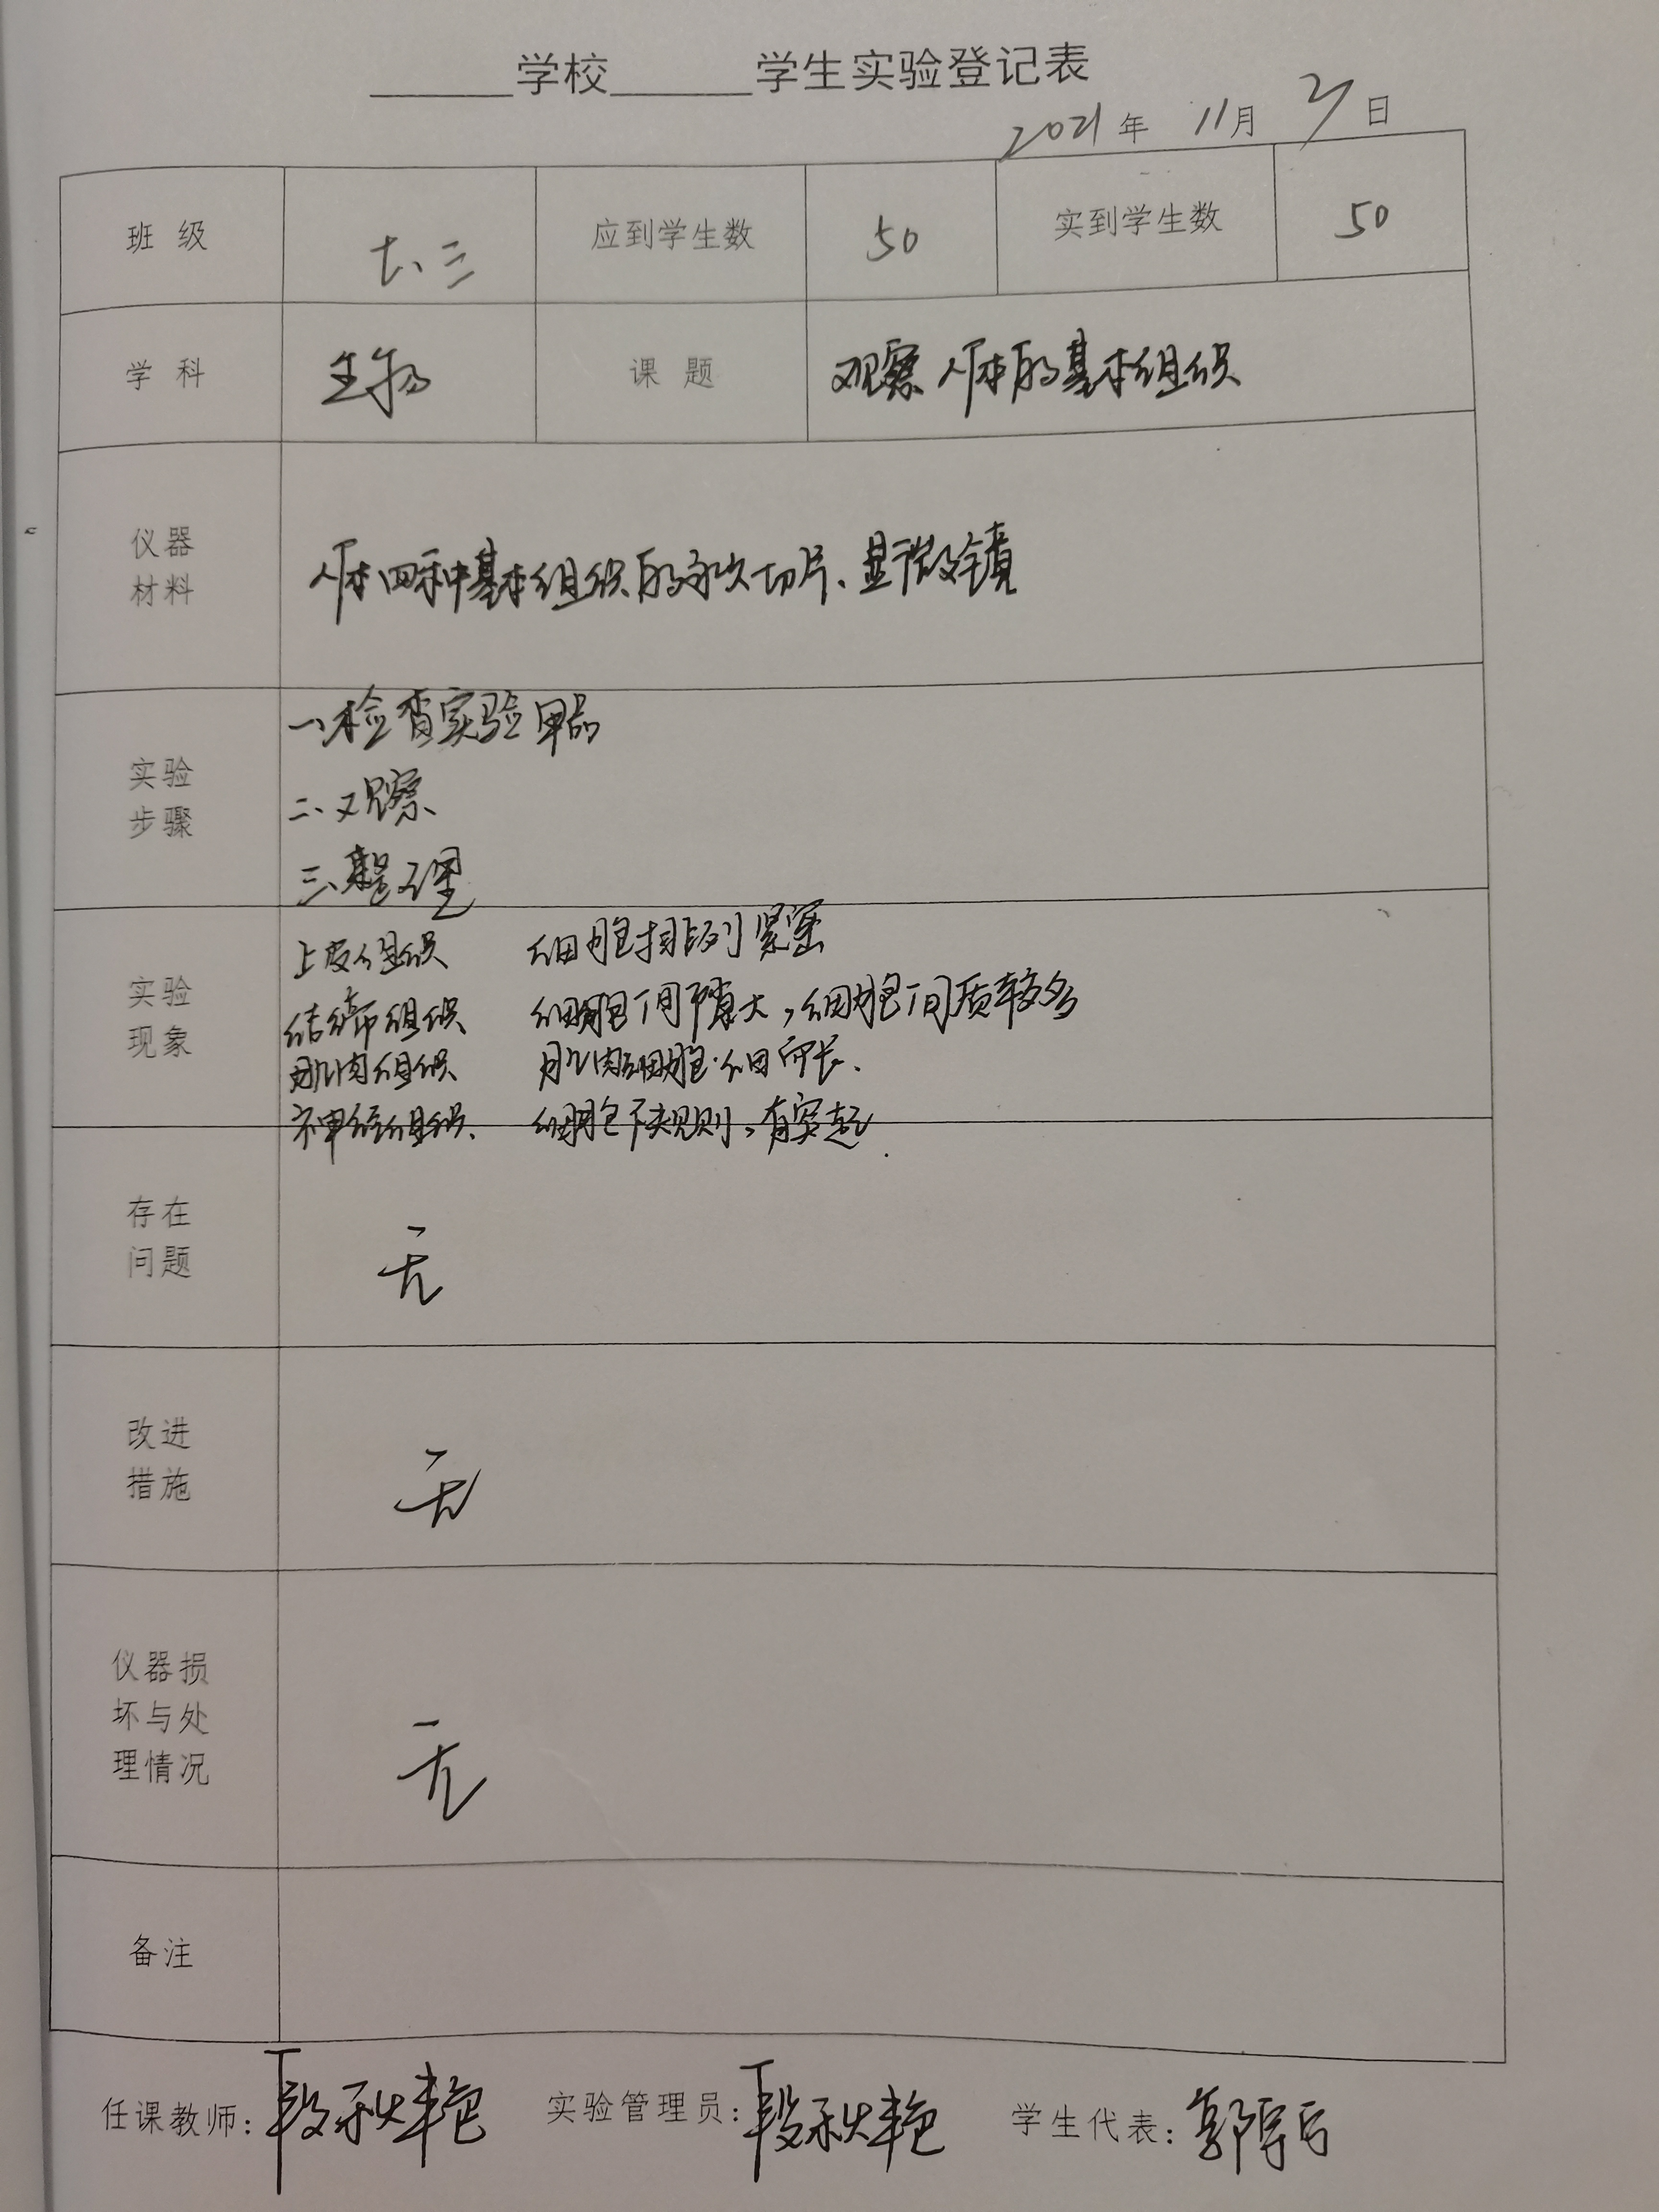 ______学校______学生实验登记表
2021年 11月 日
班 级 七、三 应到学生数 50 实到学生数 50
学 科 生物 课 题 观察人体的基本组织
仪器
材料
人体四种基本组织的永久切片、显微镜
实验
步骤
一、检查实验用品
二、观察
三、整理
实验
现象
上皮组织 细胞排列紧密
结缔组织 细胞间隙大,细胞间质较多
肌肉组织 肌肉细胞细而长.
神经组织、 细胞不规则,有突起.
存在
问题
无
改进
措施
无
仪器损
坏与处
理情况
无
备注
任课教师:段秋艳 实验管理员:段秋艳 学生代表:郭